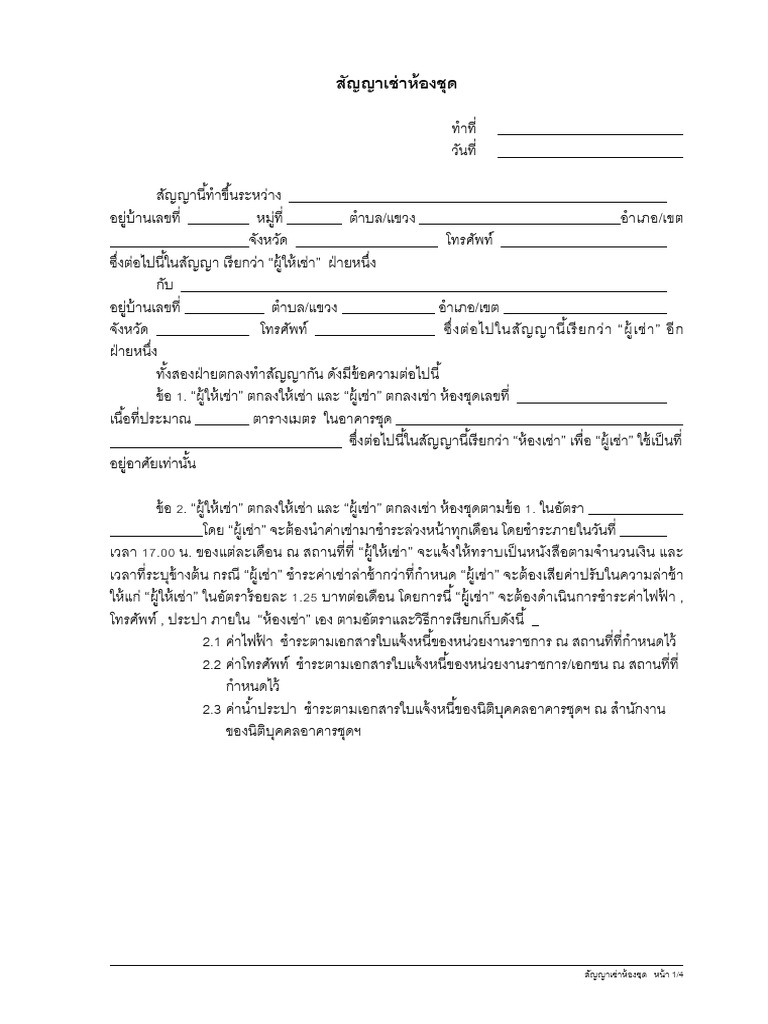 สัญญาเช่าห้องชุด
ทำที่ ____________________
วันที่ ____________________
สัญญานี้ทำขึ้นระหว่าง ____________________
อยู่บ้านเลขที่ ________ หมู่ที่ ________ ตำบล/แขวง ____________________อำเภอ/เขต
____________________จังหวัด ____________________ โทรศัพท์ ____________________
ซึ่งต่อไปนี้ในสัญญา เรียกว่า “ผู้ให้เช่า” ฝ่ายหนึ่ง
กับ ____________________
อยู่บ้านเลขที่ ____________ ตำบล/แขวง ____________ อำเภอ/เขต ____________________
จังหวัด ____________ โทรศัพท์ ____________ ซึ่งต่อไปในสัญญานี้เรียกว่า “ผู้เช่า” อีก
ฝ่ายหนึ่ง
ทั้งสองฝ่ายตกลงทำสัญญากัน ดังมีข้อความต่อไปนี้
ข้อ 1. “ผู้ให้เช่า” ตกลงให้เช่า และ “ผู้เช่า” ตกลงเช่า ห้องชุดเลขที่ ____________________
เนื้อที่ประมาณ ________ ตารางเมตร ในอาคารชุด ____________________
____________________ ซึ่งต่อไปนี้ในสัญญานี้เรียกว่า “ห้องเช่า” เพื่อ “ผู้เช่า” ใช้เป็นที่
อยู่อาศัยเท่านั้น
ข้อ 2. “ผู้ให้เช่า” ตกลงให้เช่า และ “ผู้เช่า” ตกลงเช่า ห้องชุดตามข้อ 1. ในอัตรา ____________
____________โดย “ผู้เช่า” จะต้องนำค่าเช่ามาชำระล่วงหน้าทุกเดือน โดยชำระภายในวันที่ ______
เวลา 17.00 น. ของแต่ละเดือน ณ สถานที่ที่ “ผู้ให้เช่า” จะแจ้งให้ทราบเป็นหนังสือตามจำนวนเงิน และ
เวลาที่ระบุข้างต้น กรณี “ผู้เช่า” ชำระค่าเช่าล่าช้ากว่าที่กำหนด “ผู้เช่า” จะต้องเสียค่าปรับในความล่าช้า
ให้แก่ “ผู้ให้เช่า” ในอัตราร้อยละ 1.25 บาทต่อเดือน โดยการนี้ “ผู้เช่า” จะต้องดำเนินการชำระค่าไฟฟ้า ,
โทรศัพท์ , ประปา ภายใน “ห้องเช่า” เอง ตามอัตราและวิธีการเรียกเก็บดังนี้ _
2.1 ค่าไฟฟ้า ชำระตามเอกสารใบแจ้งหนี้ของหน่วยงานราชการ ณ สถานที่ที่กำหนดไว้
2.2 ค่าโทรศัพท์ ชำระตามเอกสารใบแจ้งหนี้ของหน่วยงานราชการ/เอกชน ณ สถานที่ที่
กำหนดไว้
2.3 ค่าน้ำประปา ชำระตามเอกสารใบแจ้งหนี้ของนิติบุคคลอาคารชุดฯ ณ สำนักงาน
ของนิติบุคคลอาคารชุดฯ
สัญญาเช่าห้องชุด หน้า 1/4